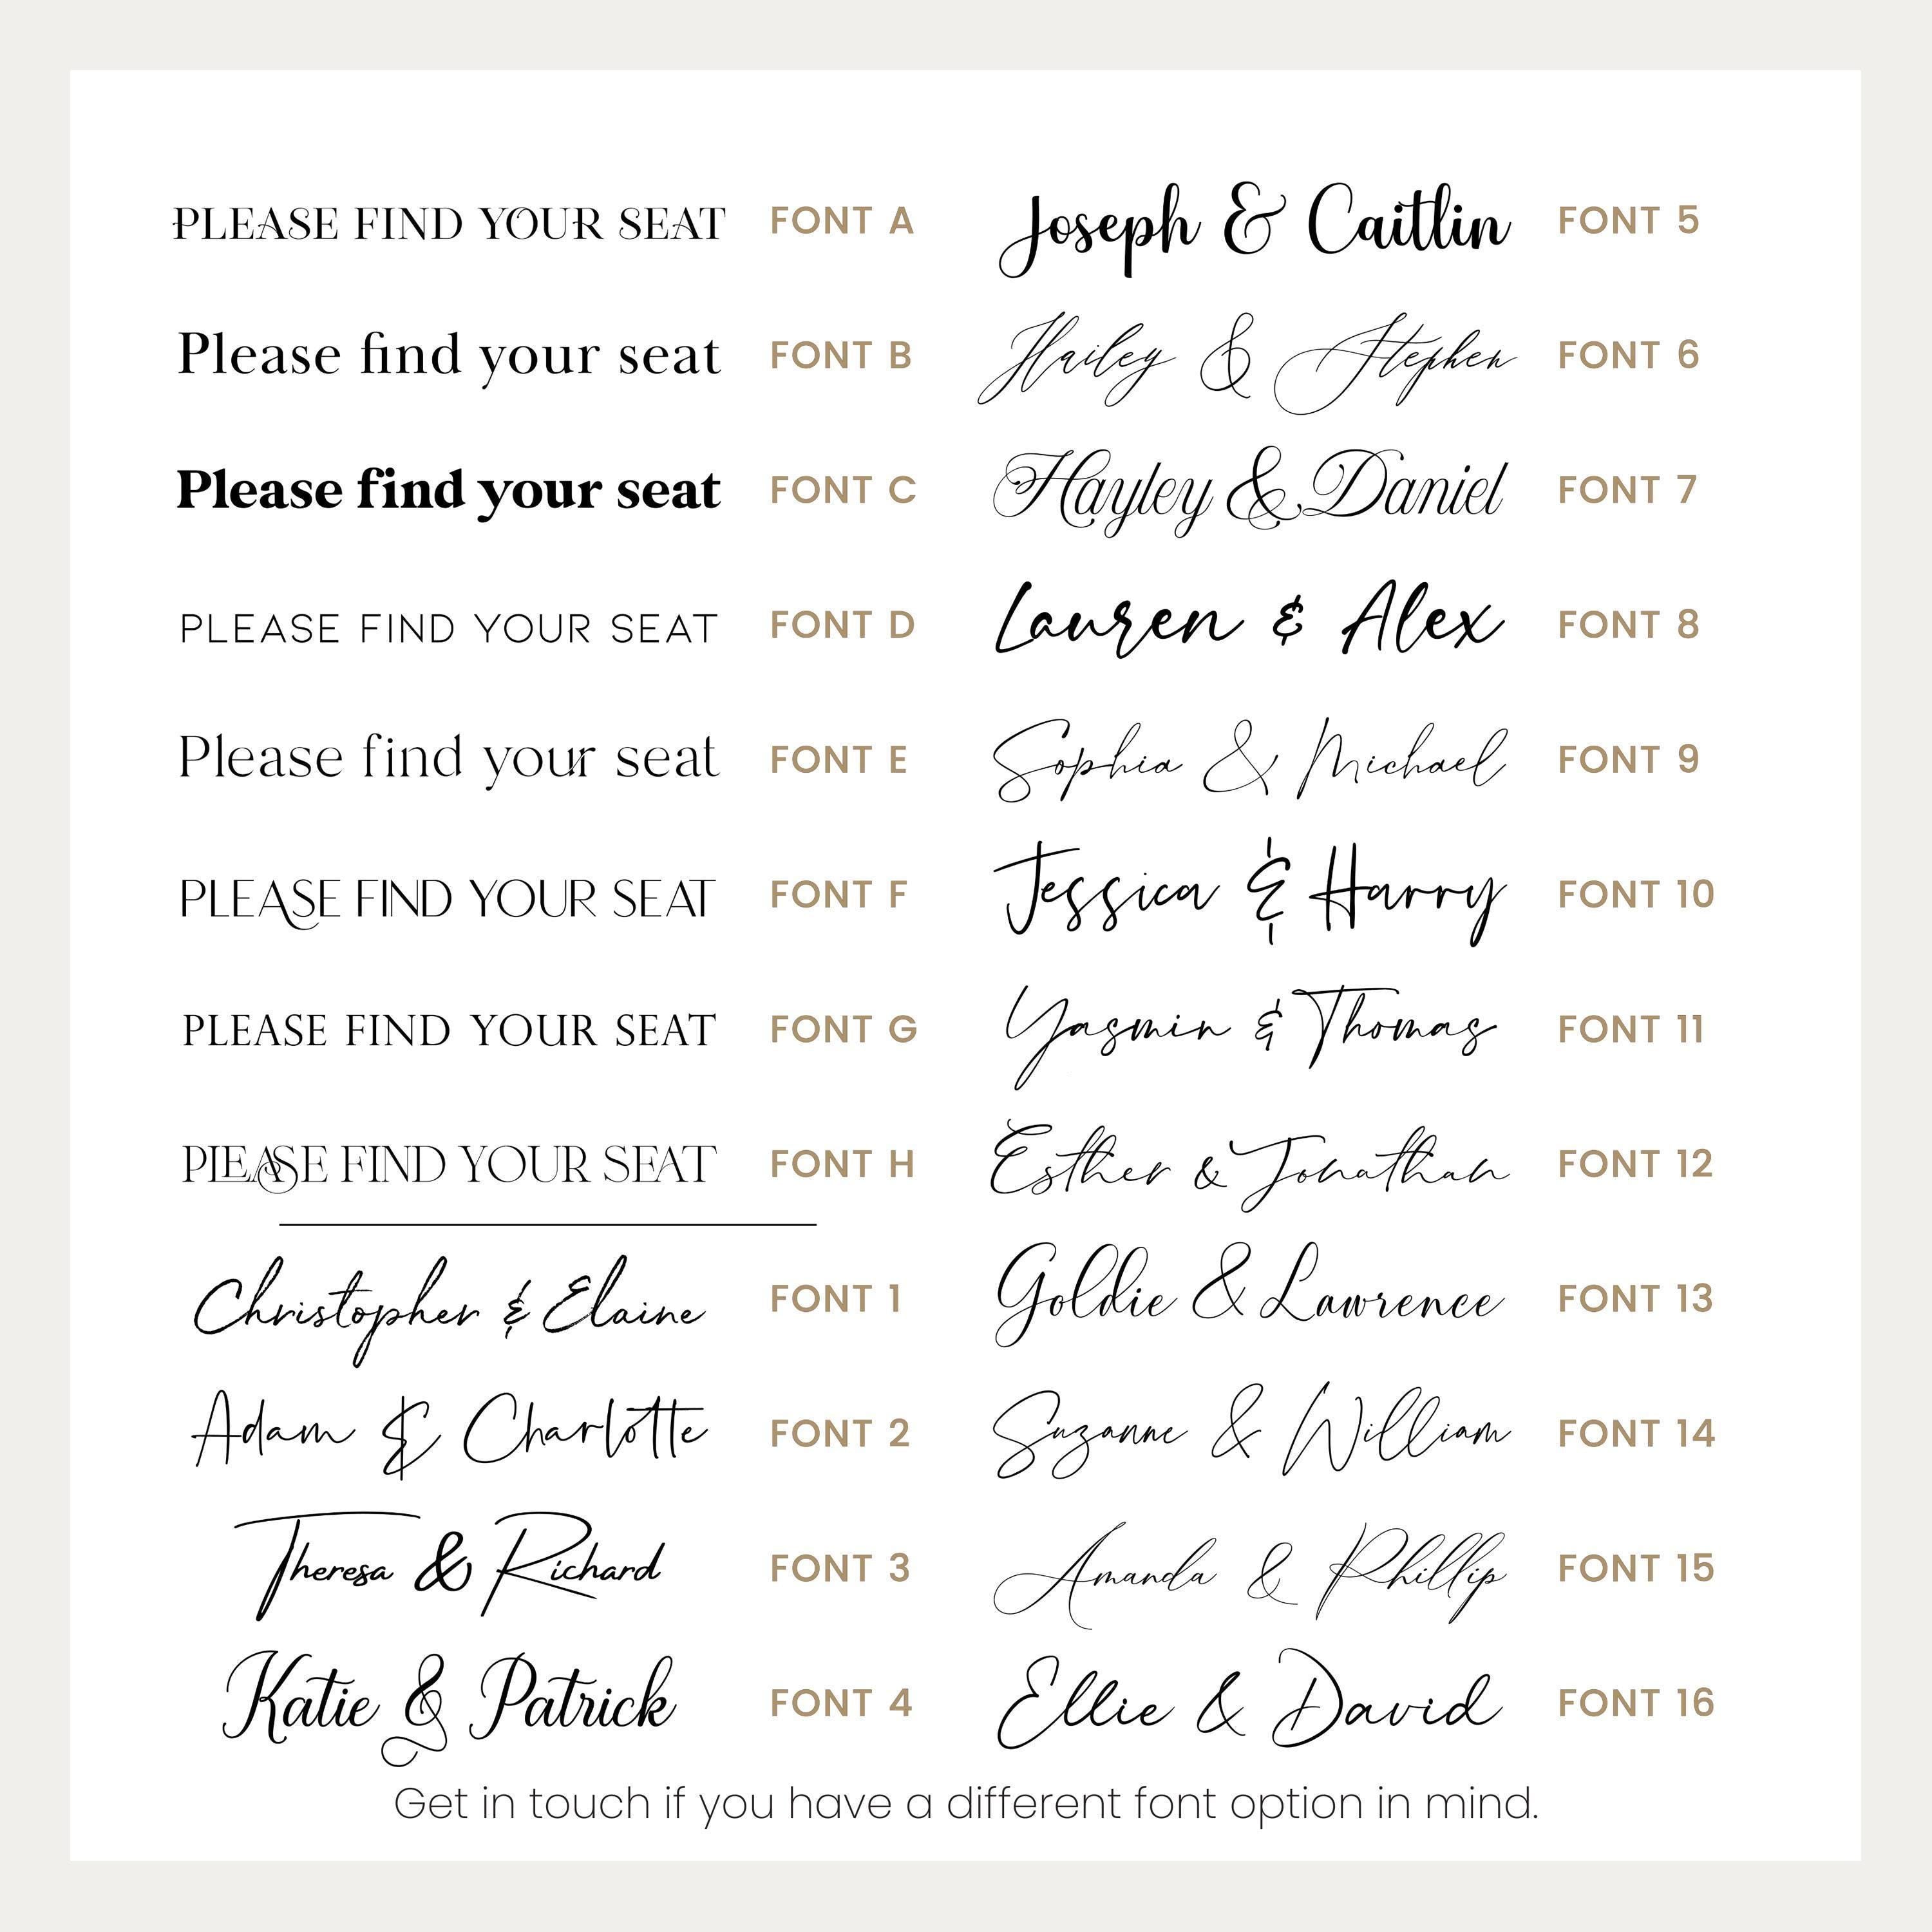 PLEASE FIND YOUR SEAT FONT A
Please find your seat FONT B
Please find your seat FONT C
PLEASE FIND YOUR SEAT FONT D
Please find your seat FONT E
PLEASE FIND YOUR SEAT FONT F
PLEASE FIND YOUR SEAT FONT G
PLEASE FIND YOUR SEAT FONT H
Christopher & Elaine FONT 1
Adam & Charlotte FONT 2
Theresa & Richard FONT 3
Katie & Patrick FONT 4
Joseph & Caitlin FONT 5
Hailey & Stephen FONT 6
Hayley & Daniel FONT 7
Lauren & Alex FONT 8
Sophia & Michael FONT 9
Jessica & Harry FONT 10
Yasmin & Thomas FONT 11
Esther & Jonathan FONT 12
Goldie & Lawrence FONT 13
Suzanne & William FONT 14
Amanda & Phillip FONT 15
Ellie & David FONT 16
Get in touch if you have a different font option in mind.